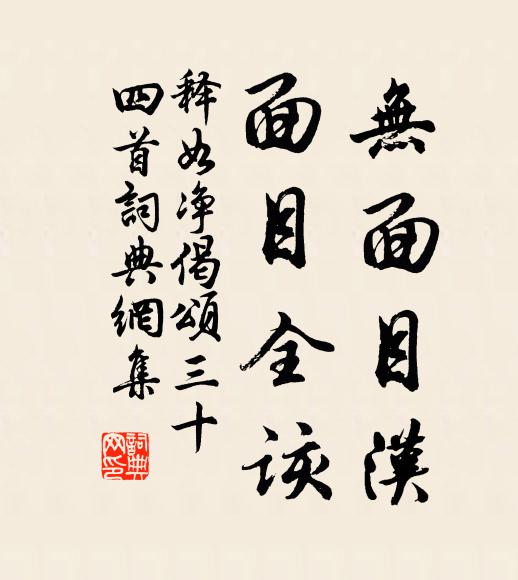 無面目漢
面目全該
释如净偈頌三十
四首詞典網集
詞典網印